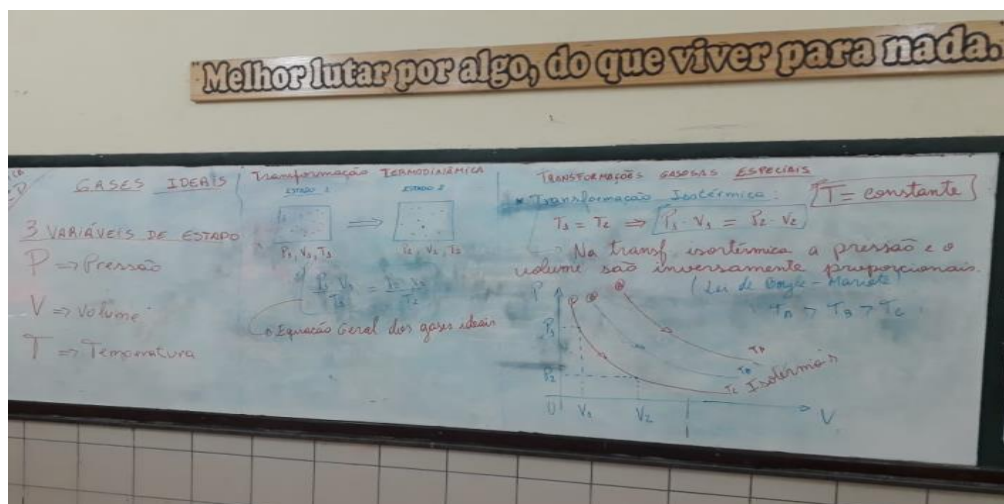 "Melhor lutar por algo, do que viver para nada."
GASES IDEAIS
3 VARIÁVEIS DE ESTADO
P => Pressão
V => Volume
T => Temperatura
Transformação TERMODINÂMICA
ESTADO 1
ESTADO 2
P₁, V₁, T₁
P₂, V₂, T₂
P₁ V₁ / T₁ = P₂ V₂ / T₂
Equação Geral dos gases ideais
TRANSFORMAÇÕES GASOSAS ESPECIAIS
* Transformação Isotérmica:
T = constante
T₁ = T₂ ⇒ P₁ · V₁ = P₂ · V₂
Na transf. isortérmica a pressão e o
volume são inversamente proporcionais.
(Lei de Boyle - Mariote)
TA > TB > TC
P
P₁
P₂
0
V₁
V₂
V
TA
TB
TC
Isotérmais